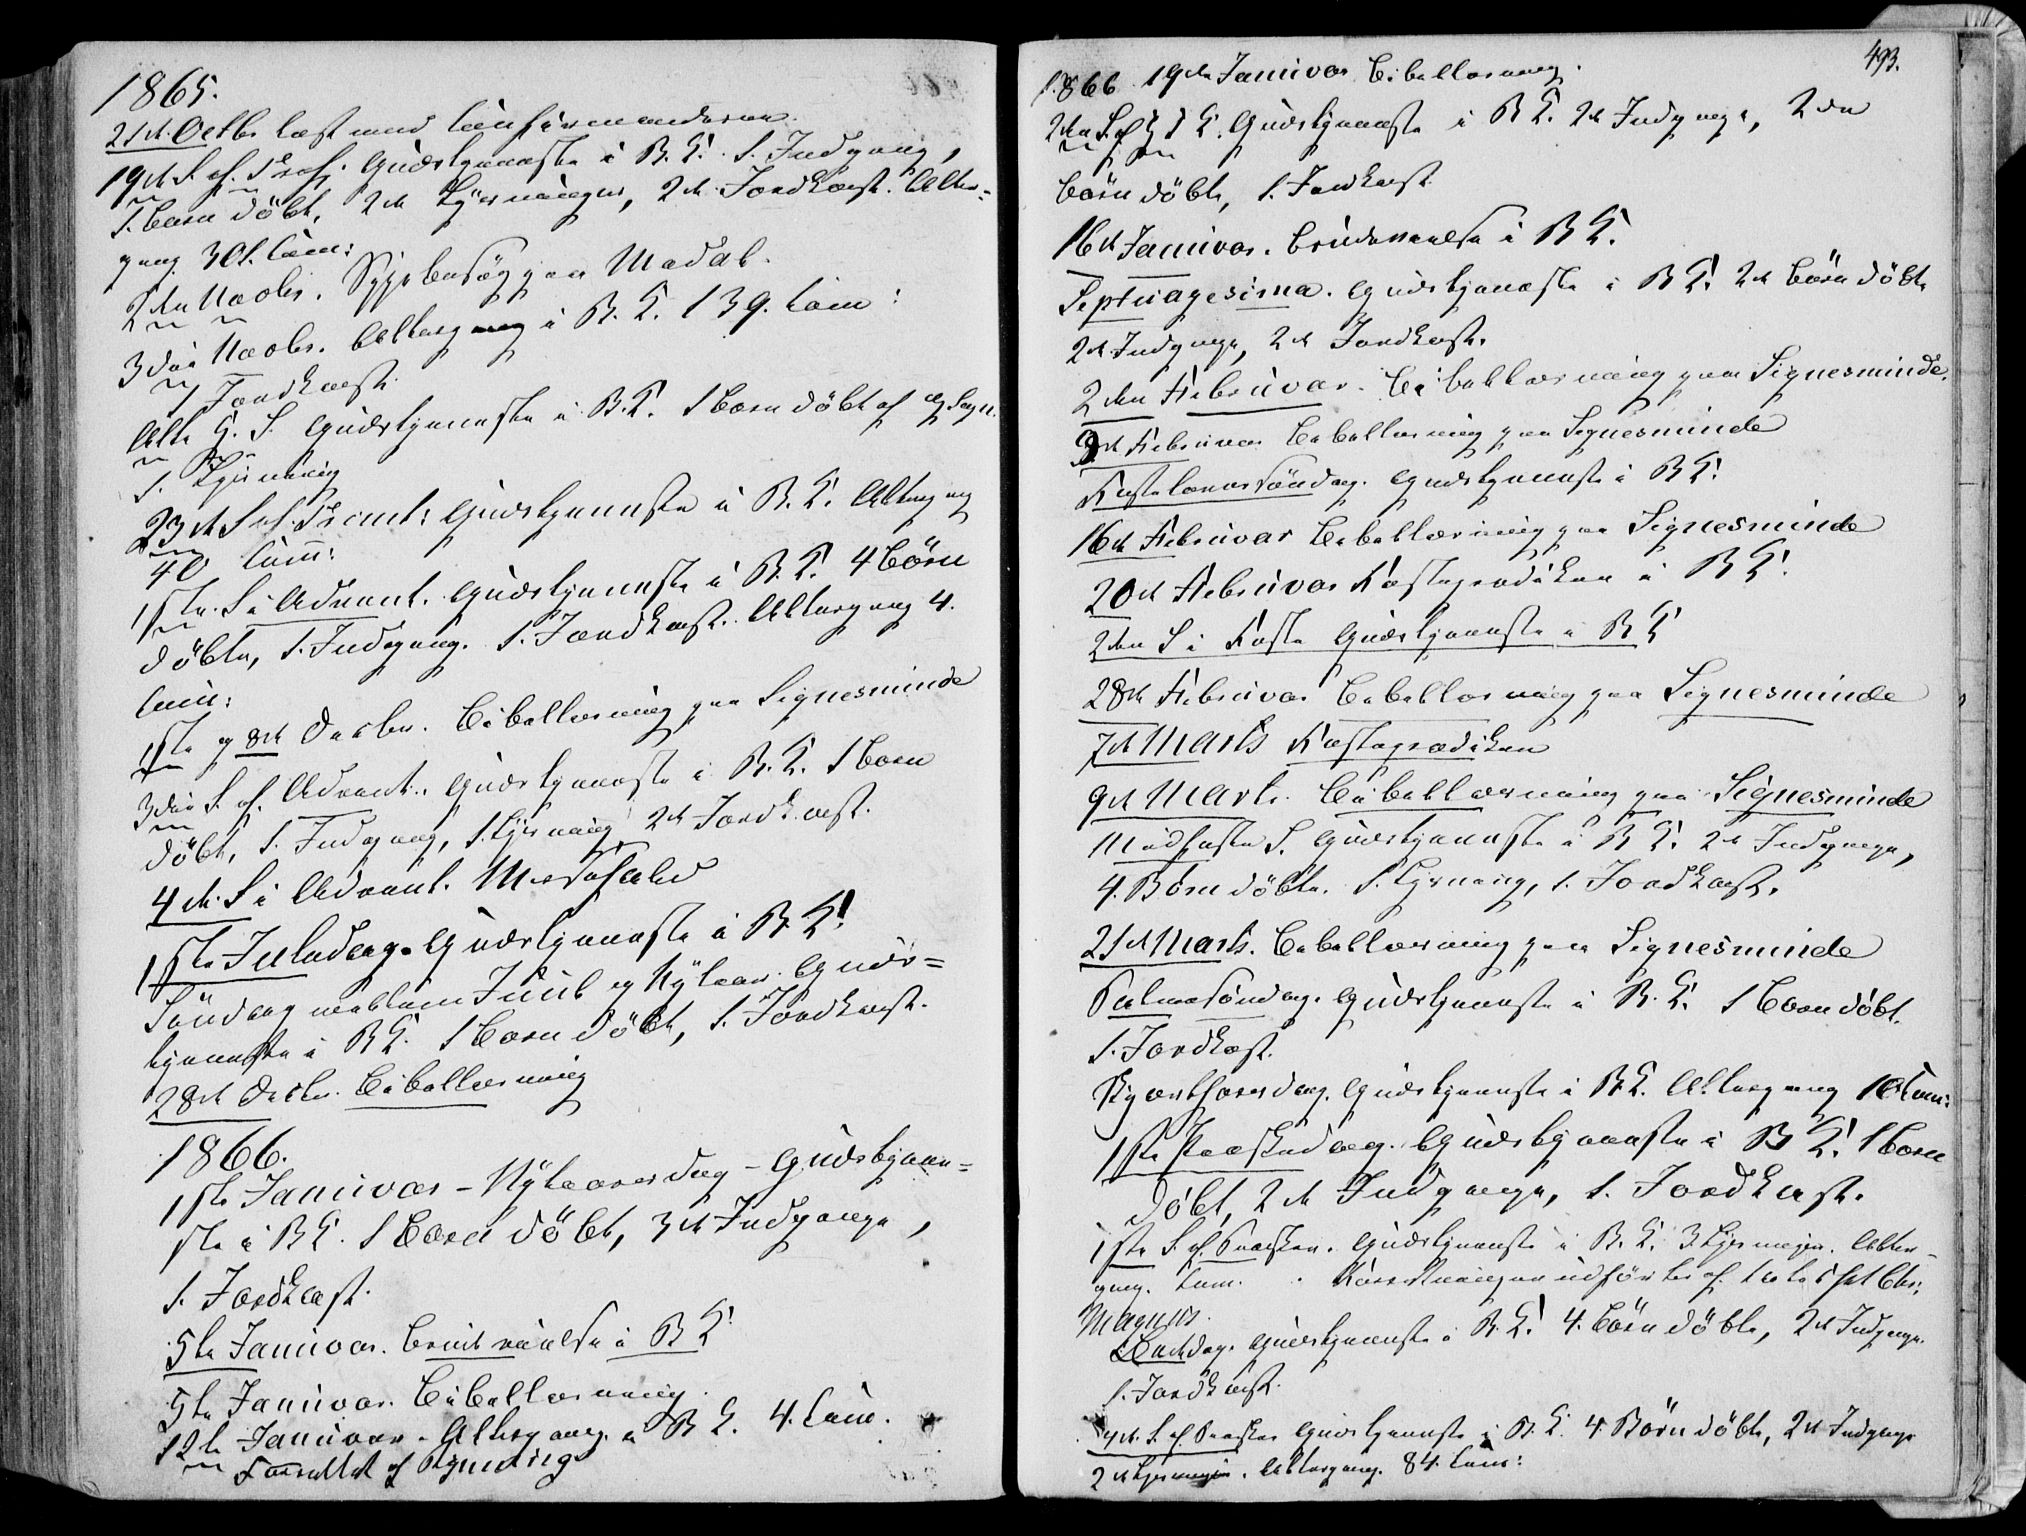 1865.
21de Octbr. læst med Confirmanderne.
19de S. ef. Tref. Gudstjeneste i B.K. 1. Indgang,
1. Barn døbt, 2de Kjerninger, 2de Jordkast. Alter=
gang 301. Com:
2den Novbr. Sygebesøg paa Madal.
3die Novbr. Altergang i B.K. 139. Com:
1 Jordkast.
Alle H. S. Gudstjeneste i B.K. 1 Barn døbt af og Sogn.
1. Kjerning
23de S. ef. Trinit: Gudstjeneste i B.K. Altergang
40 Com:
1ste S. i Advent. Gudstjeneste i B.K. 4 Börn
döbte, 1. Indgang. 1. Jordkast. Altergang 4.
Com:
1ste og 8de Decbr. Bibellæsning paa Signesminde
3die S. ef. Advent. Gudstjeneste i B.K. 1 Barn
döbt, 1. Indgang, 1. Kjerning 2de Jordkast.
4de S i Advent. Messefald
1ste Juledag. Gudstjeneste i B.K.
Söndag mellem Juul og Nytaar. Guds=
tjeneste i BK. 1 Barn döbt, 1. Jordkast.
28de Decbr. Bibellæsning
1866.
1ste Januvar - Nytaarsdag - Gudstjene=
ste i BK. 1 Barn döbt, 3de Indgange,
1. Jordkast.
5te Januvar. Brudevielse i BK
5te Januvar. Bibellæsning.
12te Januvar. Altergang. i B K. 4. Com.
493.
1866 19de Januvar Bibellæsning.
2den S. ef H 3 K. Gudstjeneste i B K. 2de Indgange, 2den
Börn döbte, 1. Jordkast.
16de Januvar. Brudevielse i B K.
Septuagesima. Gudstjeneste i B K. 2de Börn döbte
2de Indgange, 2de Jordkast.
2den Februvar. Bibellæsning paa Signesminde.
9de Februvar Bibellæsning paa Signesminde
Fastelavnssöndag. Gudstjeneste i B K.
16de Februvar Bibellæsning paa Signesminde
20de Februvar Fasteprædiken i B K.
2den S i Faste Gudstjeneste i B K
28de Februvar Bibellæsning paa Signesminde
7de Marts Fasteprædiken
9de Marts. Bibellæsning paa Signesminde
Midfaste S. Gudstjeneste i B K. 2de Indgange,
4. Börn döbte. 1. Kjerning, 1. Jordkast.
21de Marts. Bibellæsning paa Signesminde
Palmesöndag. Gudstjeneste i B. K. 1 Barn döbt.
1. Jordkast.
Skjærthorsdag. Gudstjeneste i B.K. Altergang 10 Com:
1ste Paaskedag. Gudstjeneste i B K. 1 Barn
döbt, 2de Indgange, 1. Jordkast.
1ste S. ef Paasken. Gudstjeneste i B. K. 3 Kjerninger. Alter=
gang. Com.
Magnus.
Bededag. Gudstjeneste i B. K. 4. Börn döbte, 2de Indgange.
1. Jordkast.
4de S. ef Paasken Gudstjeneste i B. K. 4 Börn döbte, 2de Indgange
2de Kjerninger. Altergang. 84. Com: